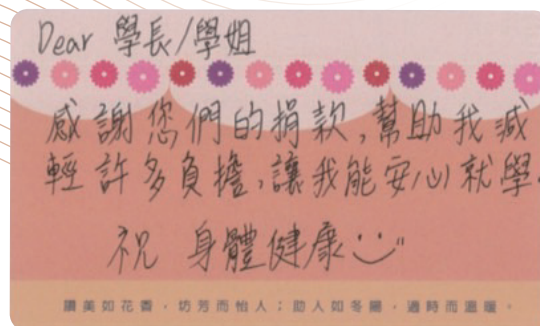 Dear 學長/學姐
感謝您們的捐款,幫助我減
輕許多負擔,讓我能安心就學.
祝 身體健康
讚美如花香,坊芳而怡人;助人如冬陽,適時而溫暖。